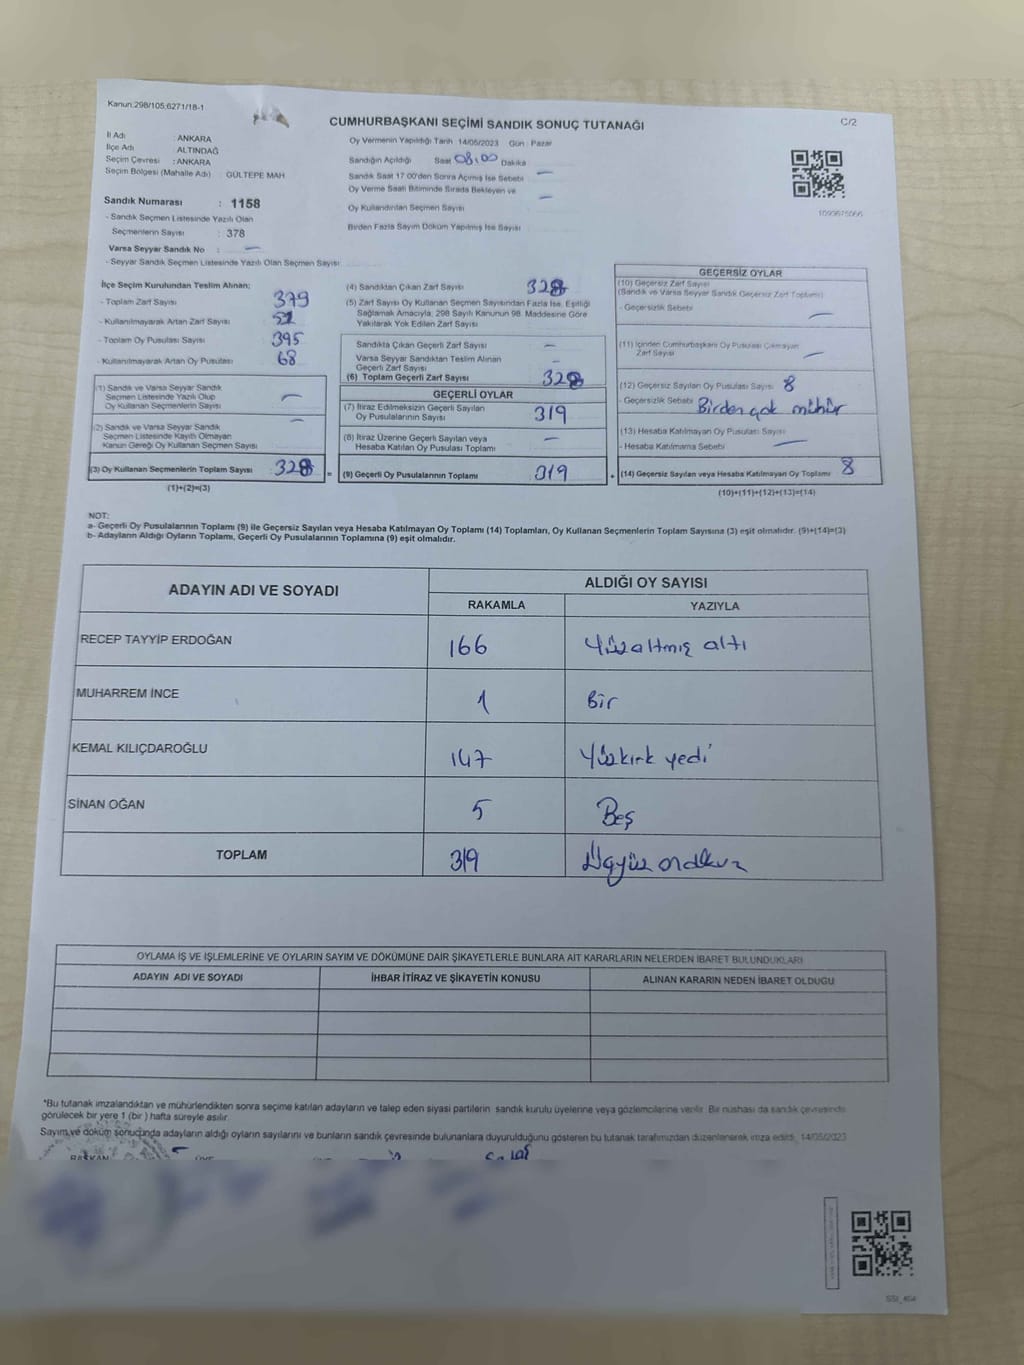 Kanun:298/105;6271/18-1
CUMHURBAŞKANI SEÇİMİ SANDIK SONUÇ TUTANAĞI
C/2
İl Adı : ANKARA
İlçe Adı : ALTINDAĞ
Seçim Çevresi : ANKARA
Seçim Bölgesi (Mahalle Adı) : GÜLTEPE MAH
Sandık Numarası : 1158
- Sandık Seçmen Listesinde Yazılı Olan
Seçmenlerin Sayısı : 378
Varsa Seyyar Sandık No : —
- Seyyar Sandık Seçmen Listesinde Yazılı Olan Seçmen Sayısı
Oy Vermenin Yapıldığı Tarih 14/05/2023 Gün : Pazar
Sandığın Açıldığı Saat 08:00 Dakika
Sandık Saat 17.00'den Sonra Açılmış İse Sebebi —
Oy Verme Saati Bitiminde Sırada Bekleyen ve
Oy Kullandırılan Seçmen Sayısı —
Birden Fazla Sayım Döküm Yapılmış İse Sayısı
İlçe Seçim Kurulundan Teslim Alınan;
- Toplam Zarf Sayısı 379
- Kullanılmayarak Artan Zarf Sayısı 51
- Toplam Oy Pusulası Sayısı 395
- Kullanılmayarak Artan Oy Pusulası 68
(1) Sandık ve Varsa Seyyar Sandık
Seçmen Listesinde Yazılı Olup
Oy Kullanan Seçmenlerin Sayısı —
(2) Sandık ve Varsa Seyyar Sandık
Seçmen Listesinde Kayıtlı Olmayan
Kanun Gereği Oy Kullanan Seçmen Sayısı —
(3) Oy Kullanan Seçmenlerin Toplam Sayısı 328
(1)+(2)=(3)
(4) Sandıktan Çıkan Zarf Sayısı 328
(5) Zarf Sayısı Oy Kullanan Seçmen Sayısından Fazla İse, Eşitliği
Sağlamak Amacıyla, 298 Sayılı Kanunun 98. Maddesine Göre
Yakılarak Yok Edilen Zarf Sayısı
Sandıkta Çıkan Geçerli Zarf Sayısı —
Varsa Seyyar Sandıktan Teslim Alınan
Geçerli Zarf Sayısı —
(6) Toplam Geçerli Zarf Sayısı 328
GEÇERLİ OYLAR
(7) İtiraz Edilmeksizin Geçerli Sayılan
Oy Pusulalarının Sayısı 319
(8) İtiraz Üzerine Geçerli Sayılan veya
Hesaba Katılan Oy Pusulası Toplamı —
(9) Geçerli Oy Pusulalarının Toplamı 319
GEÇERSİZ OYLAR
(10) Geçersiz Zarf Sayısı
(Sandık ve Varsa Seyyar Sandık Geçersiz Zarf Toplamı)
- Geçersizlik Sebebi —
(11) İçinden Cumhurbaşkanı Oy Pusulası Çıkmayan
Zarf Sayısı —
(12) Geçersiz Sayılan Oy Pusulası Sayısı 8
- Geçersizlik Sebebi Birden çok mühür
(13) Hesaba Katılmayan Oy Pusulası Sayısı
- Hesaba Katılmama Sebebi —
(14) Geçersiz Sayılan veya Hesaba Katılmayan Oy Toplamı 8
(10)+(11)+(12)+(13)=(14)
NOT:
a- Geçerli Oy Pusulalarının Toplamı (9) ile Geçersiz Sayılan veya Hesaba Katılmayan Oy Toplamı (14) Toplamları, Oy Kullanan Seçmenlerin Toplam Sayısına (3) eşit olmalıdır. (9)+(14)=(3)
b- Adayların Aldığı Oyların Toplamı, Geçerli Oy Pusulalarının Toplamına (9) eşit olmalıdır.
ADAYIN ADI VE SOYADI
ALDIĞI OY SAYISI
RAKAMLA YAZIYLA
RECEP TAYYİP ERDOĞAN 166 Yüzaltmış altı
MUHARREM İNCE 1 Bir
KEMAL KILIÇDAROĞLU 147 Yüzkırk yedi
SİNAN OĞAN 5 Beş
TOPLAM 319 Üçyüz ondokuz
OYLAMA İŞ VE İŞLEMLERİNE VE OYLARIN SAYIM VE DÖKÜMÜNE DAİR ŞİKAYETLERLE BUNLARA AİT KARARLARIN NELERDEN İBARET BULUNDUKLARI
ADAYIN ADI VE SOYADI İHBAR İTİRAZ VE ŞİKAYETİN KONUSU ALINAN KARARIN NEDEN İBARET OLDUĞU
*Bu tutanak imzalandıktan ve mühürlendikten sonra seçime katılan adayların ve talep eden siyasi partilerin sandık kurulu üyelerine veya gözlemcilerine verilir. Bir nüshası da sandık çevresinde
görülecek bir yere 1 (bir ) hafta süreyle asılır.
Sayım ve döküm sonucunda adayların aldığı oyların sayılarını ve bunların sandık çevresinde bulunanlara duyurulduğunu gösteren bu tutanak tarafımızdan düzenlenerek imza edildi. 14/05/2023
BAŞKAN ÜYE